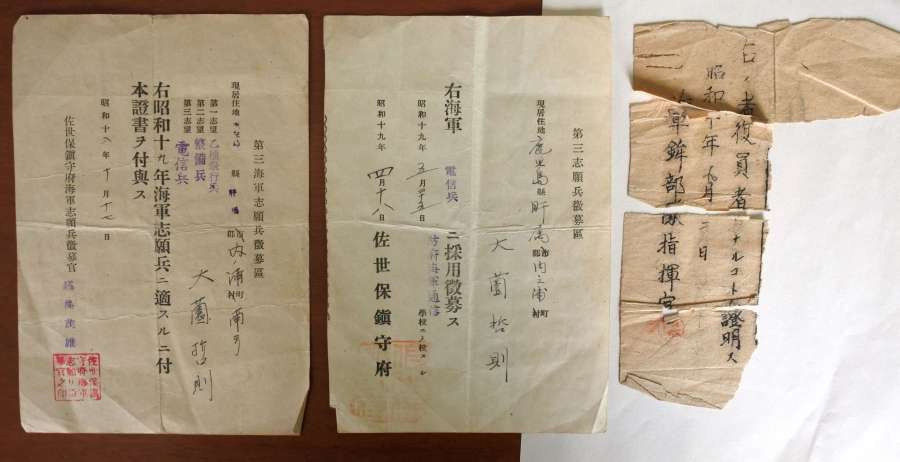 第三海軍志願兵徴募區
現居住地 縣 郡 内ノ浦 町村 南方
大薗哲則
第一志望 乙種飛行兵
第二志望 整備兵
第三志望 電信兵
右昭和十九年海軍志願兵ニ適スルニ付
本證書ヲ付與ス
昭和十八年十月十七日
佐世保鎭守府海軍志願兵徴募官
第三志願兵徴募區
現居住地 鹿児島縣 肝属 市郡 内之浦 町村
大薗哲則
右海軍 電信兵 ニ採用徴募ス
昭和十九年五月二十五日 防府海軍通信學校ニ入校
昭和十九年四月十八日 佐世保鎭守府
右ノ者復員者ナルコトヲ證明ス
昭和二十年九月二日
部隊指揮官